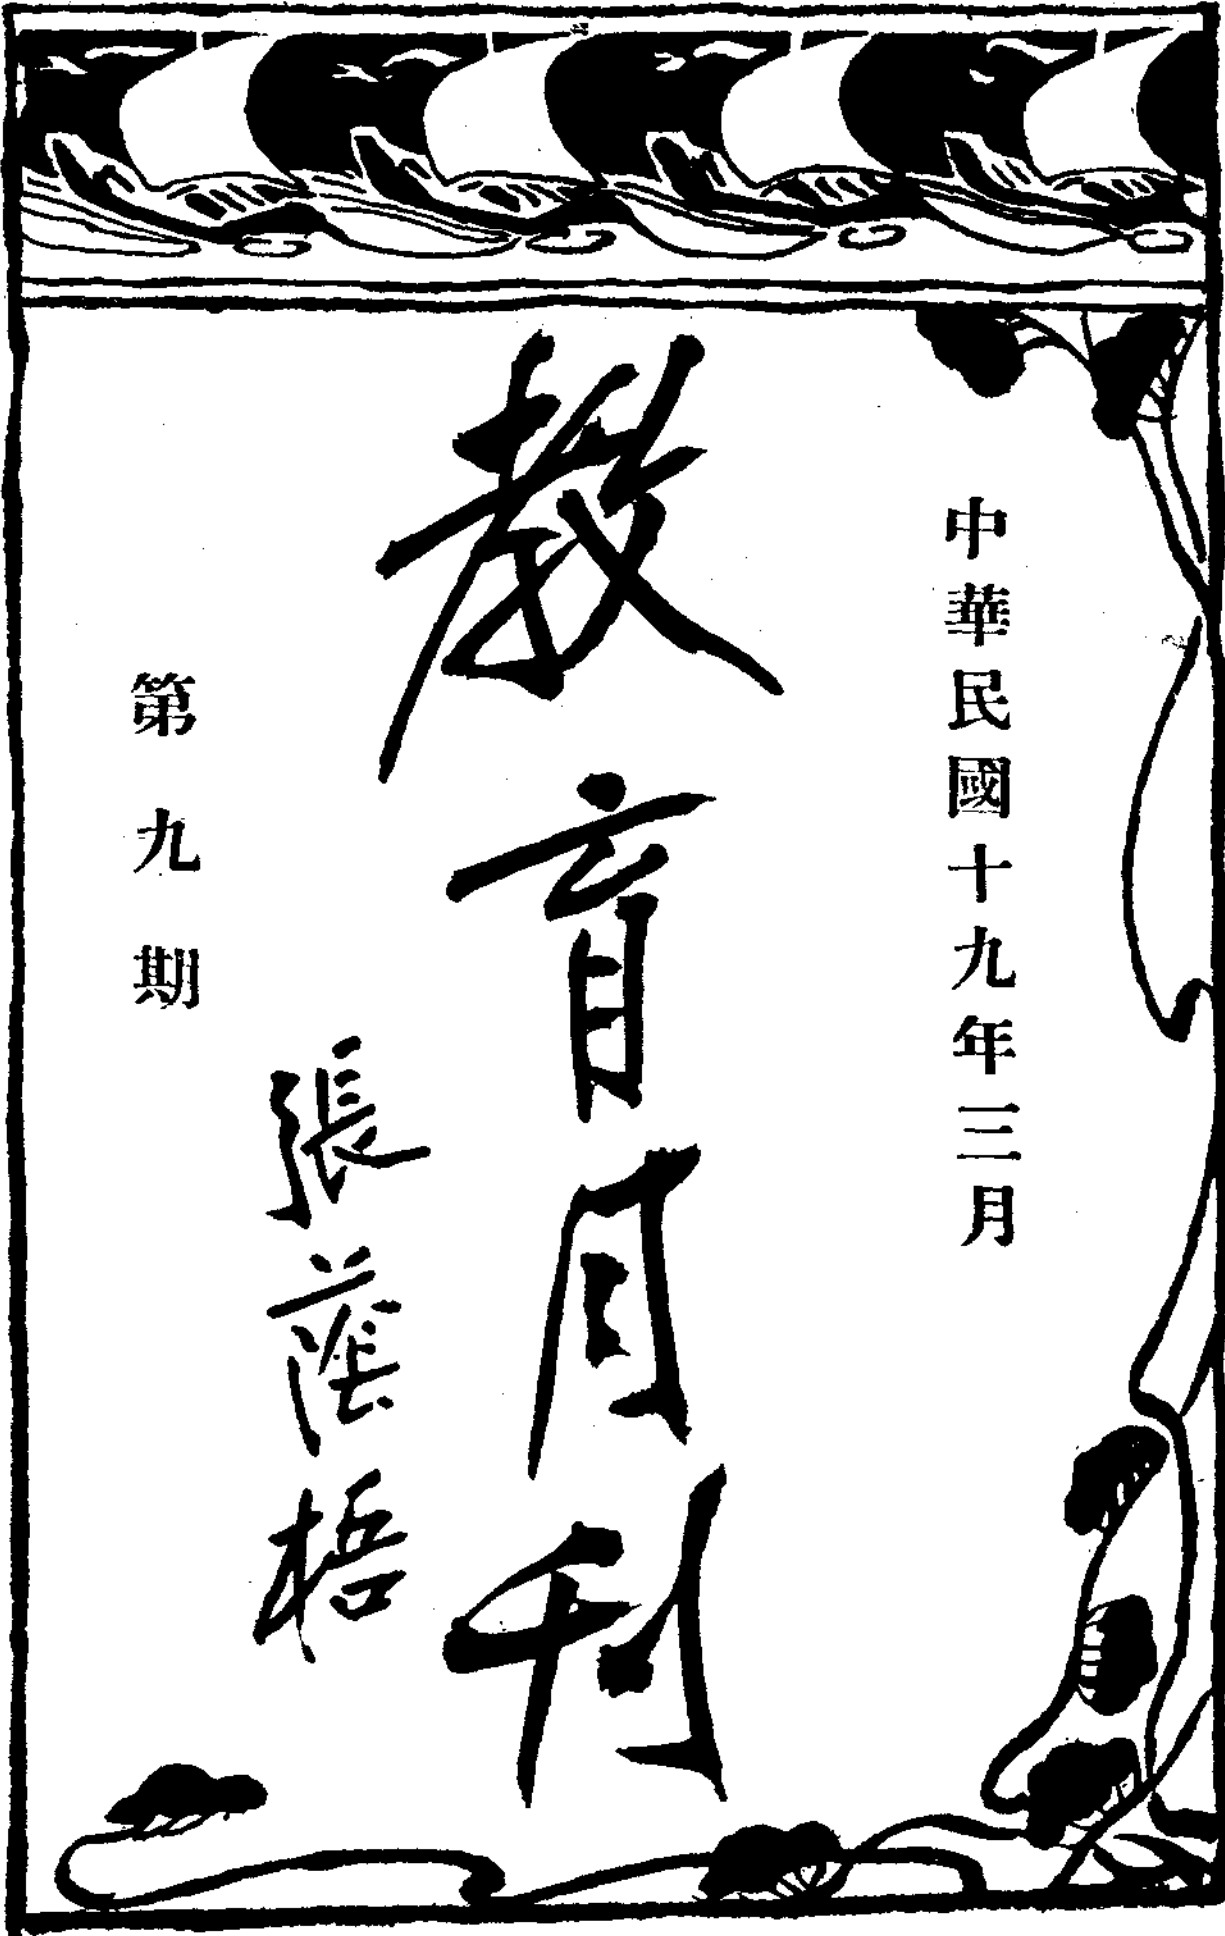 中華民國十九年三月
教育月刊
張蔭梧
第九期